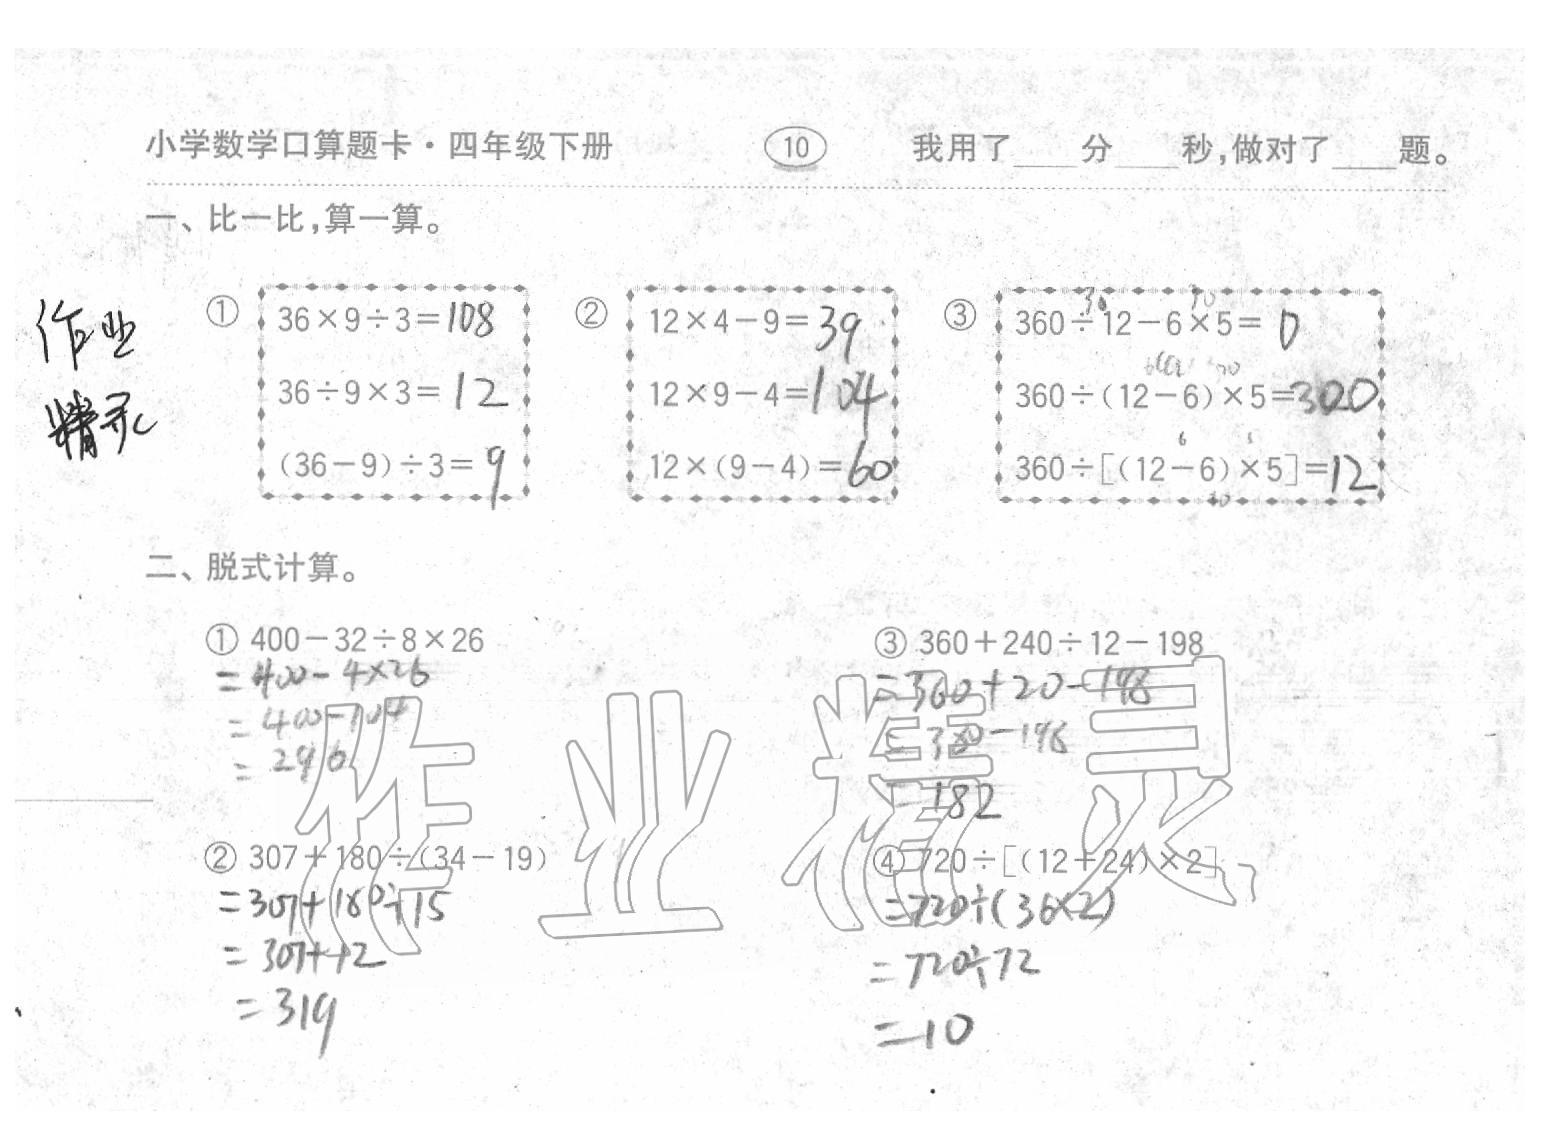 小学数学口算题卡·四年级下册 10 我用了____分____秒,做对了____题。
一、比一比,算一算。
作业
精灵
① 36×9÷3=108
36÷9×3=12
(36-9)÷3=9
② 12×4-9=39
12×9-4=104
12×(9-4)=60
③ 360÷12-6×5=0
30 30
360÷(12-6)×5=300
360÷[(12-6)×5]=12
6
30
二、脱式计算。
① 400-32÷8×26
=400-4×26
=400-104
=296
② 307+180÷(34-19)
=307+180÷15
=307+12
=319
③ 360+240÷12-198
=360+20-198
=380-198
=182
④ 720÷[(12+24)×2]
=720÷(36×2)
=720÷72
=10
作业精灵